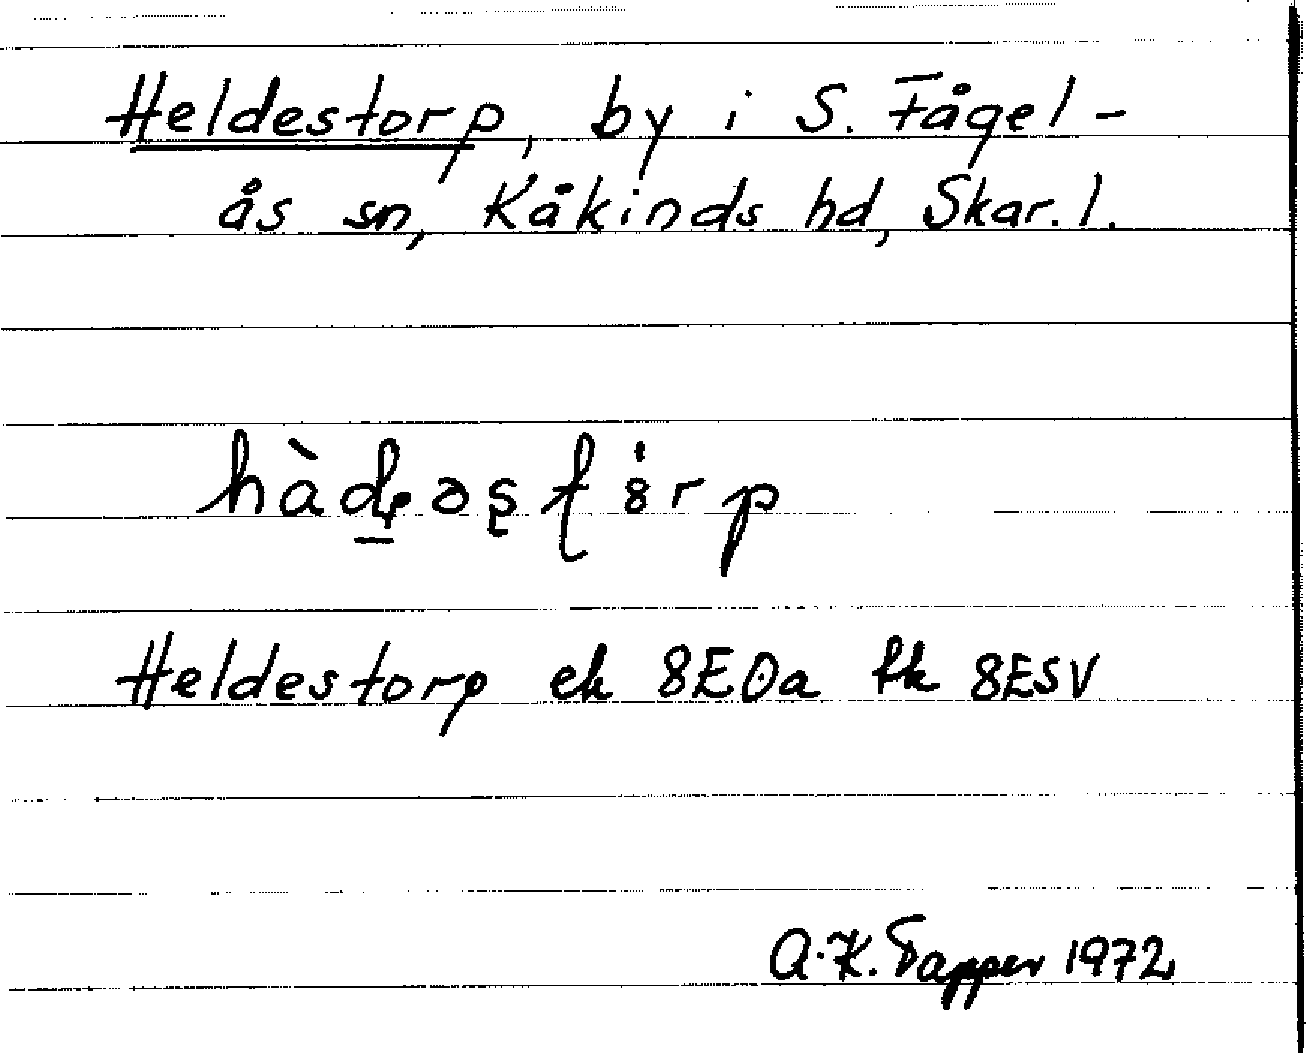 Heldestorp, by i S. Fågel-
ås sn, Kåkinds hd, Skar. l.
Heldestorp ek 8E0a fk 8E5V
A.K. Tapper 1972